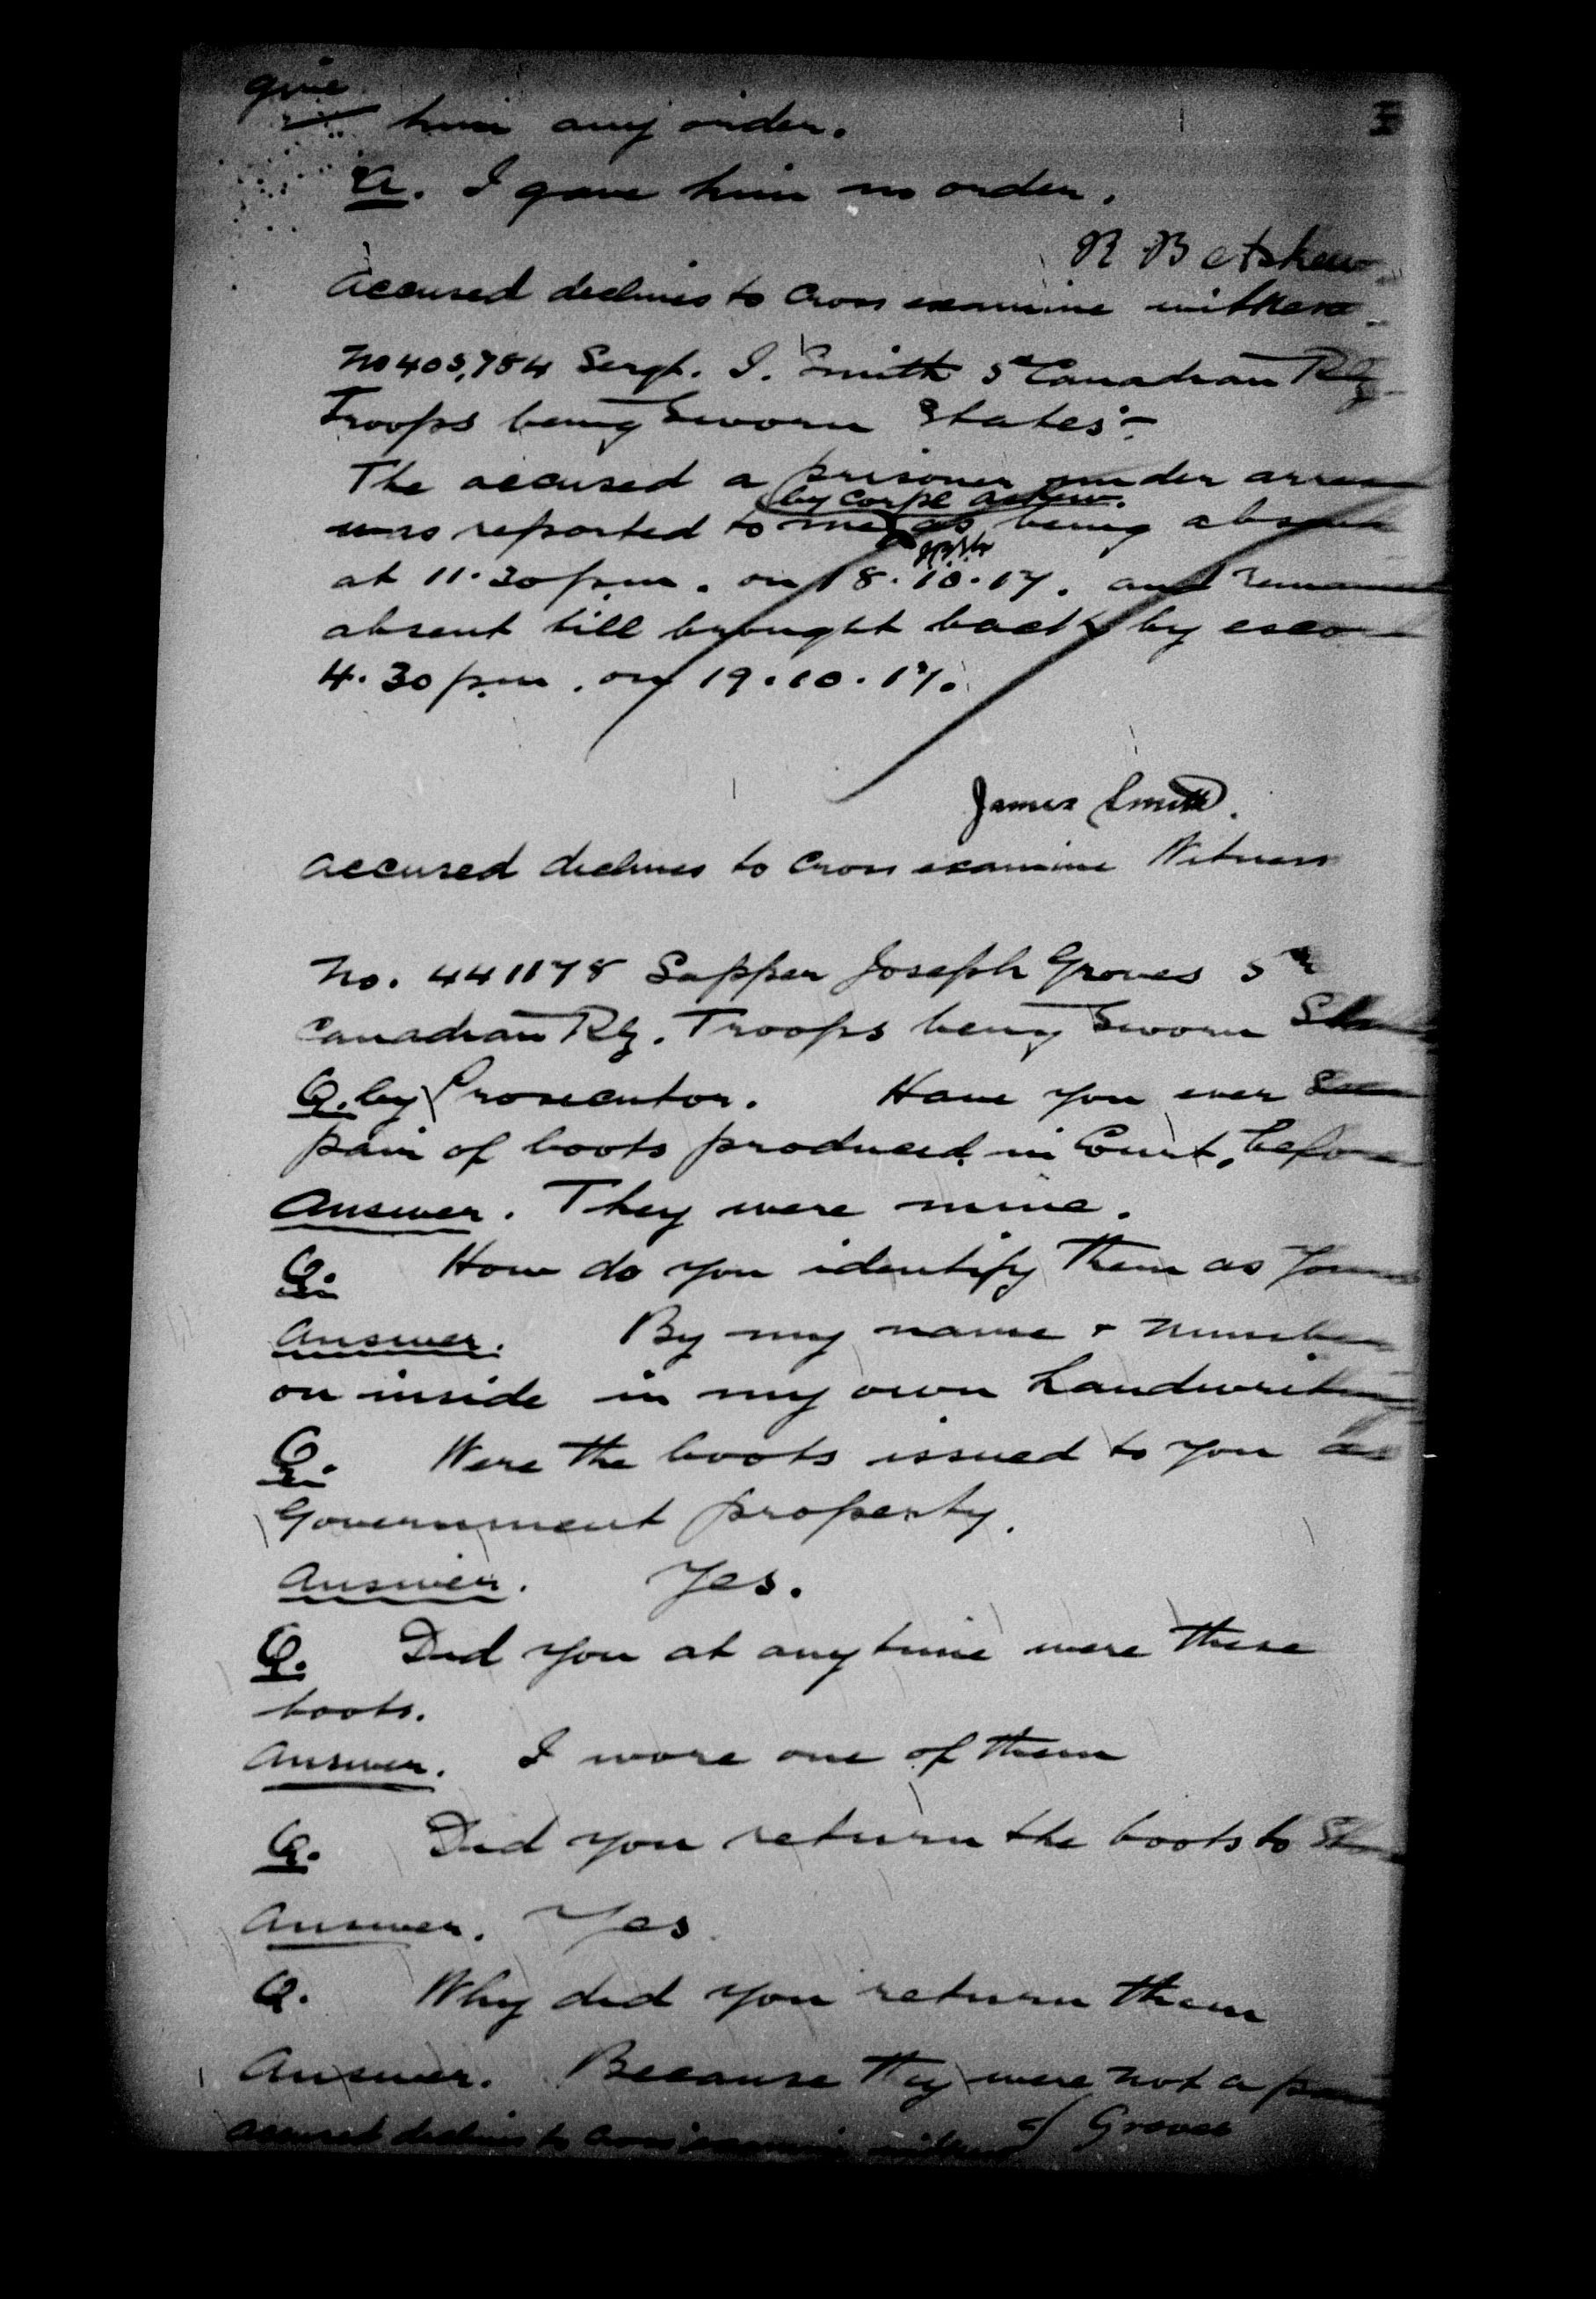 give
him any order.
A. I gave him no order.
R B Askew
accused declines to cross examine witness
No 405,784 Sergt. J. Smith 5th Canadian Rly
Troops being sworn states:-
The accused a prisoner under
by Corpl Askew.
was reported to me as being
at 11.30 p.m. on 18.10.17. and
absent till brought back by
4.30 p.m. on 19.10.17.
James Smith.
accused declines to cross examine Witness
No. 441178 Sapper Joseph Groves 5th
Canadian Rly. Troops being sworn
Q. by Prosecutor. Have you ever
pair of boots produced in Court, before
Answer. They were mine.
Q. How do you identify them as
Answer. By my name + number
on inside in my own handwriting
Q. Were the boots issued to you as
Government property.
Answer. Yes.
Q. Did you at anytime were these
boots.
Answer. I wore one of them
Q. Did you return the boots to
Answer. Yes.
Q. Why did you return them
Answer. Because they were not a
J Groves
accused declines to cross examine witness